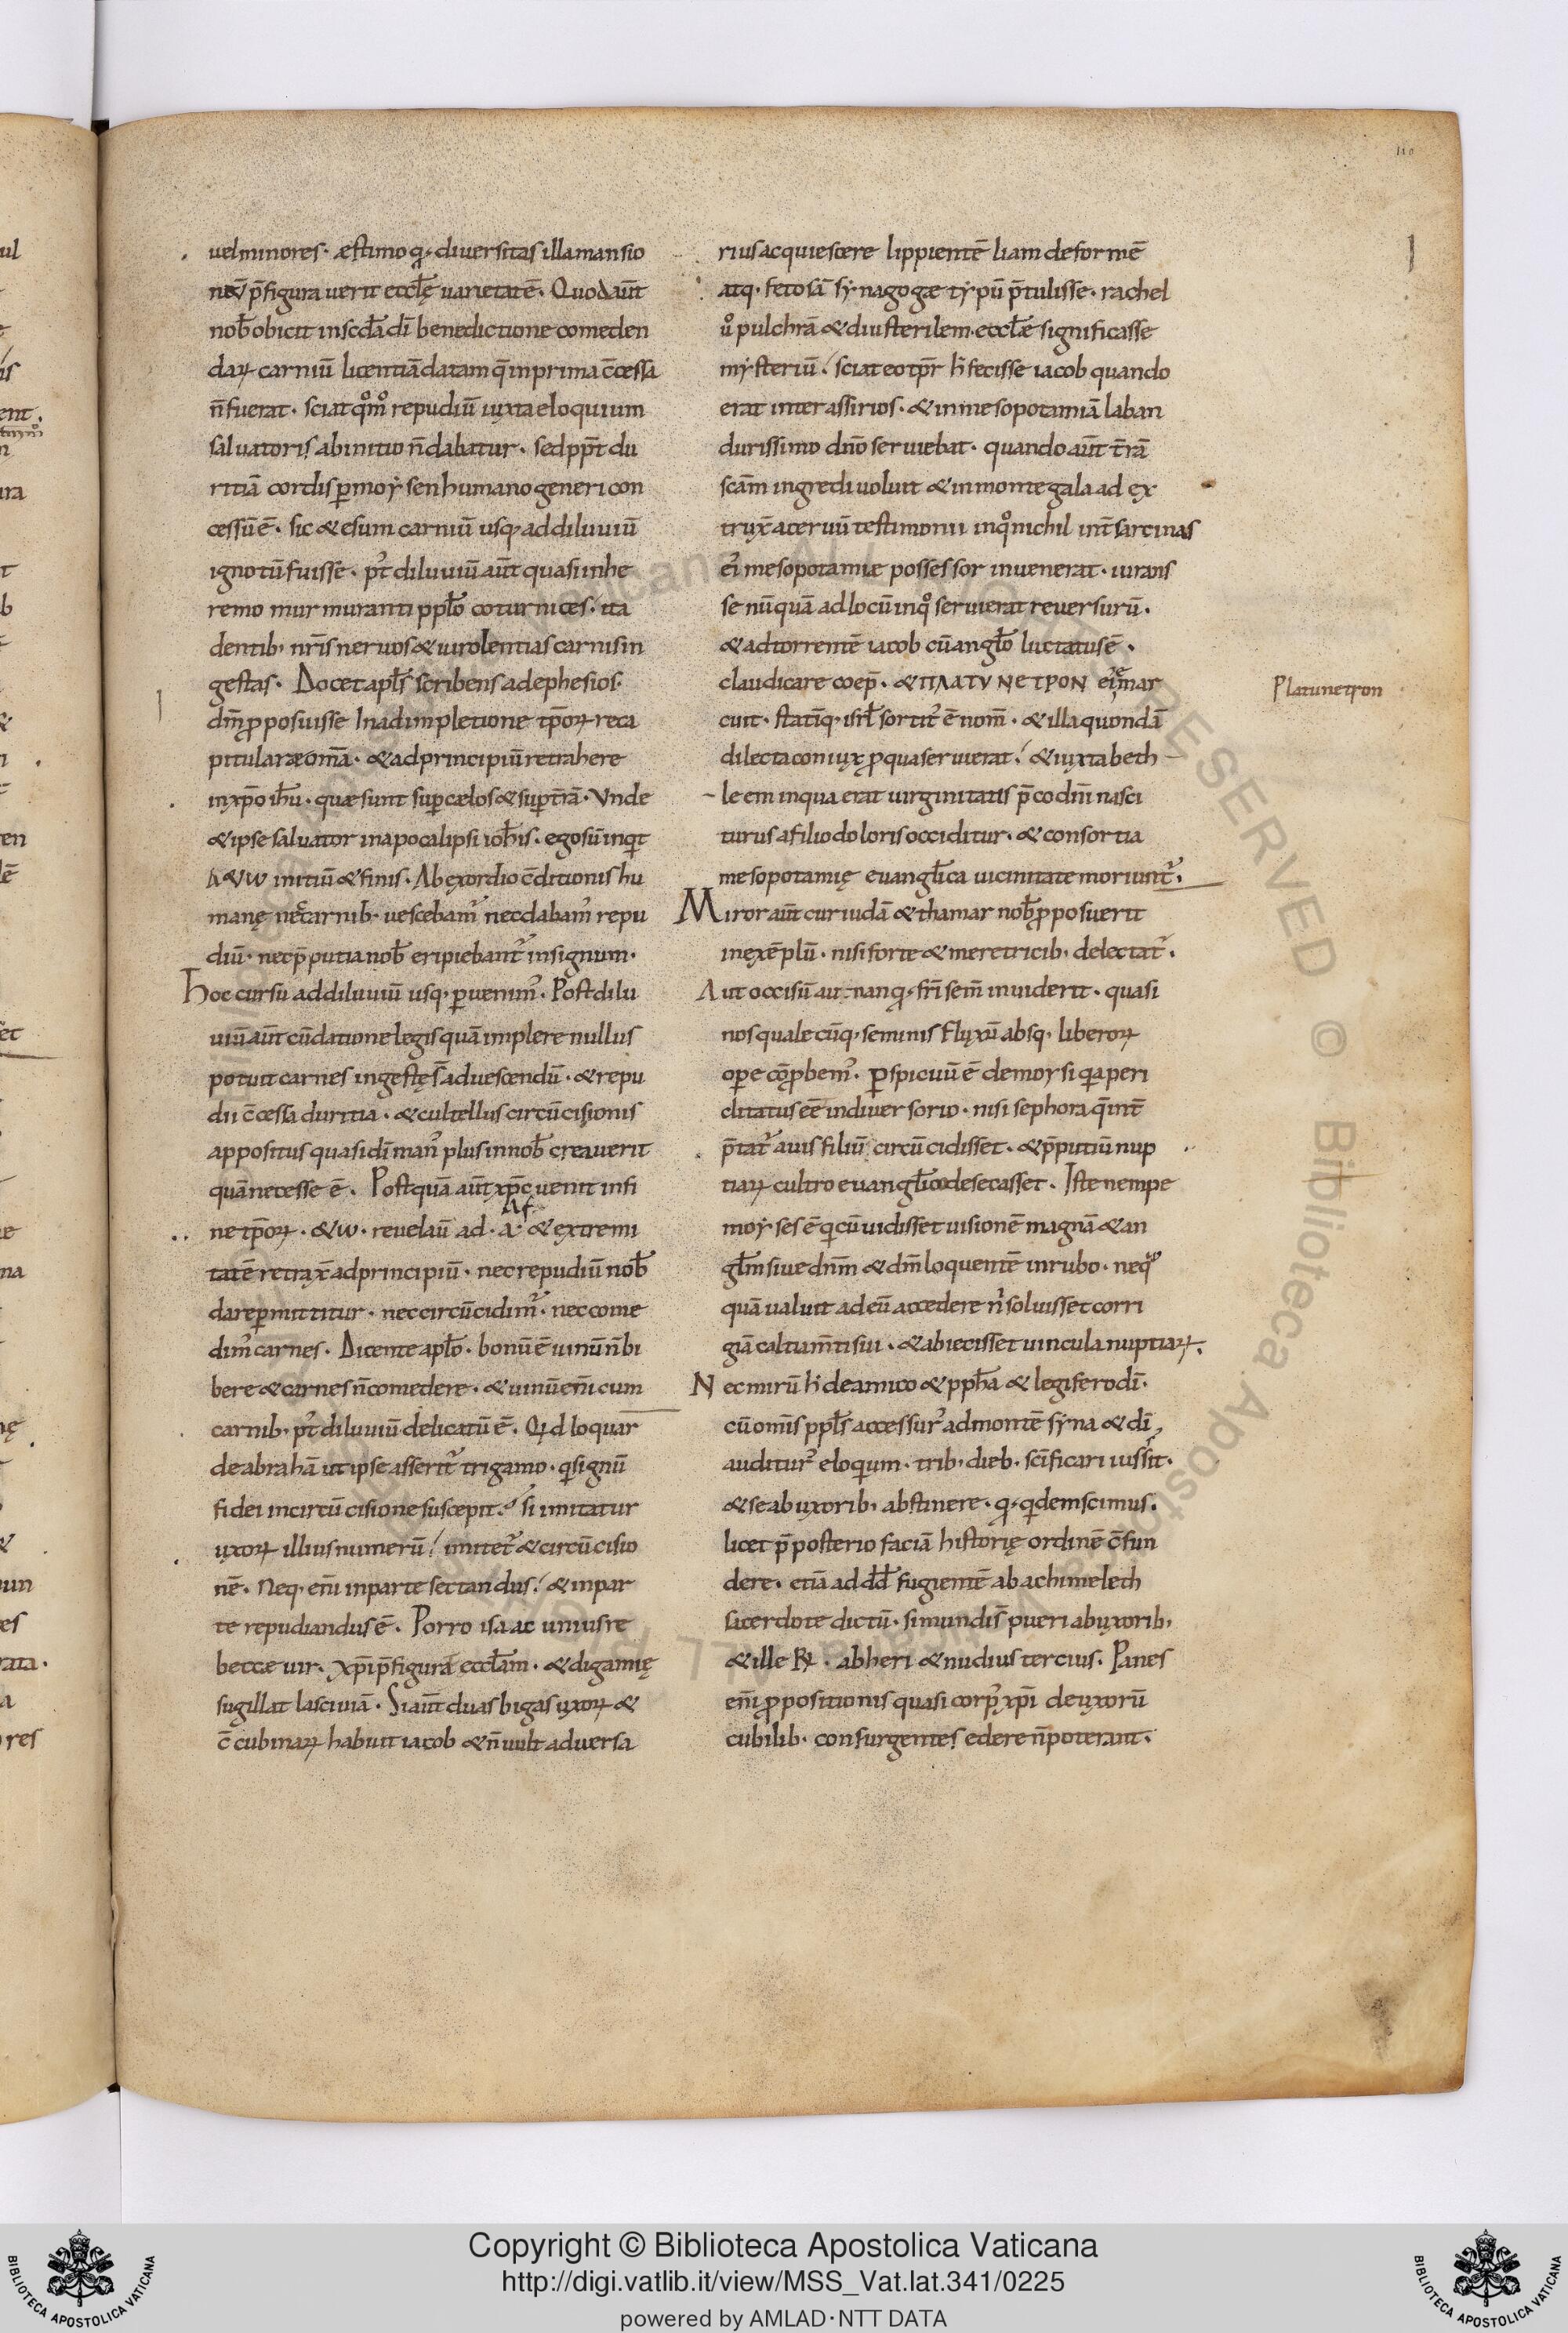 110
uelminores· æstimo q· diuersitas illa mansio
neꝝ p̄figurauerit eccl̄ę uarietatē· Quod aūt
nob̄ obicit in sc̄da dī benedictione comeden
daꝝ carniū licentiā datam q̄ in prima c̄cessa
n̄ fuerat· sciat qͦmͦ repudiū iuxta eloquium
saluatoris ab initio n̄ dabatur· sed pp̄t du
ritiā cordis ꝑ moẏsen humano generi con
cessū ē· sic & esum carniū usq· ad diluuiū
ignotū fuisse· p᷒t diluuiū aūt quasi in he
remo murmuranti ppl̄o coturnices· ita
dentib· nr̄is neruos & uirolentias carnis in
gestas· Docet apl̄s scribens ad ephesios·
dm̄ ꝓposuisse In adimpletione tp̄oꝝ reca
pitularæ om̄a· & ad principiū retrahere
in xp̄o ih̄u· quæ sunt suꝑ cælos & suꝑ t̄rā· Vnde
& ipse saluator in apocalipsi ioh̄is· ego sū inqt
A & ω initiū & finis· Ab exordio c̄ditionis hu
manę nec carnib· uescebam᷒ nec dabam᷒ repu
diū· nec p̄putia nob̄ eripiebant᷒ in signum·
Hoc cursu ad diluuiū usq· ꝑuenim᷒· Post dilu
uiū aūt cū datione legis quā implere nullus
potuit carnes ingestę s̄ ad uescendū· & repu
dii c̄cessa duritia· & cultellus circūcisionis
appositus quasi dī man᷒ plus in nob̄ creauerit
quā necesse ē· Postquā aūt xp̄c uenit in fi
Af
ne tp̄oꝝ· & ω· reuelaū ad· A· & extremi
tatē retrax̄ ad principiū· nec repudiū nob̄
dare ꝑmittitur· nec circūcidim᷒· nec come
dim᷒ carnes· Dicente apl̄o· bonū ē uinū n̄ bi
bere & carnes n̄ comedere· & uinū eni̅ cum
carnib· p᷒t diluuiū delicatū ē· Qid loquar
de abrahā ut ipse asserit᷒ trigamo· q signū
fidei in circūcisione suscepit· si imitatur
uxoꝝ illius numerū/ imitet᷒ & circūcisio
nē· Neq· eni̅ in parte sectandus/ & in par
te repudiandus ē· Porro isaac unius re
beccæ uir· xp̄i p̄figurat eccl̄am· & digamię
sugillat lasciuiā· Si aūt duas bigas uxoꝝ &
c̄cubinaꝝ habuit iacob & n̄ uult aduersa
rius acquiescere lippientē liam deformē
atq· fetosā sẏnagogæ tẏpū p̄tulisse· rachel
u̅ͦ pulchrā & diu sterilem· eccl̄æ significasse
mẏsteriū/ sciat eo tp̄r h̄ fecisse iacob quando
erat inter assirios· & in mesopotamiā laban
durissimo dn̄o seruiebat· quando aūt t̄rā
scām ingredi uoluit & in monte gala ad ex
trux̄ aceruū testimonii in qͦ nichil int̄ sarcinas
ei᷒ mesopotamiæ possessor inuenerat· iurans
se nūquā ad locū in qͦ seruierat reuersurū·
& ad torrentē iacob cū angl̄o luctatus ē·
claudicare coep̄· & ΠΛΑΤΥ ΝΕΤΡΟΝ ei᷒ emar
cuit· statīq· isrl̄ sortit᷒ ē nom̄· & illa quondā
dilecta coniux ꝓ qua seruierat/ & iuxta beth
leem in qua erat uirginitatis p̄co dn̄i nasci
turus a filio doloris occiditur· & consortia
mesopotamię euangl̄ica uicinitate moriunt᷒·
Platunetron
Miror aūt cur iudā & thamar nob̄ ꝓposuerit
in exēplū· nisi forte & meretricib· delectat᷒·
Aut occisū aunanq· fr̄i sem̄ inuiderit· quasi
nos qualecūq· seminis fluxū absq· liberoꝝ
oꝑe cōꝓbem᷒· Ꝑspicuū ē de moysi qa peri
clitatus eē in diuersorio· nisi sephora q̄ int̄
p̄tat᷒ auis filiū circūcidisset· & p̄putiū nup
tiaꝝ cultro euangl̄ico desecasset· Iste nempe
moẏses ē qi cū uidisset uisionē magnā & an
gl̄m siue dn̄m & dm̄ loquentē in rubo· neqͣ
quā ualuit ad eū accedere n̓ soluisset corri
giā caltiam̄ti sui· & abiecisset uincula nuptiaꝝ·
Nec mirū h̄ de amico & pph̄a & legifero dī·
cū om̄is ppl̄s accessur᷒ ad montē sẏna & dī
auditur᷒ eloqium· trib· dieb· scīficari iussit·
& se ab uxorib· abstinere· q· qidem scimus·
licet p̄posterio faciā historię ordinē c̄fun
dere· etiā ad dd̄ fugientē ab achimelech
sacerdote dictū· si mundi s̄ pueri ab uxorib·
& ille R̷· ab heri & nudius tercius· Panes
eni̅ ꝓpositionis quasi corp᷒ xp̄i de uxorū
cubilib· consurgentes edere n̄ poterant·
Copyright © Biblioteca Apostolica Vaticana
http://digi.vatlib.it/view/MSS_Vat.lat.341/0225
powered by AMLAD·NTT DATA
BIBLIOTECA APOSTOLICA VATICANA
BIBLIOTECA APOSTOLICA VATICANA